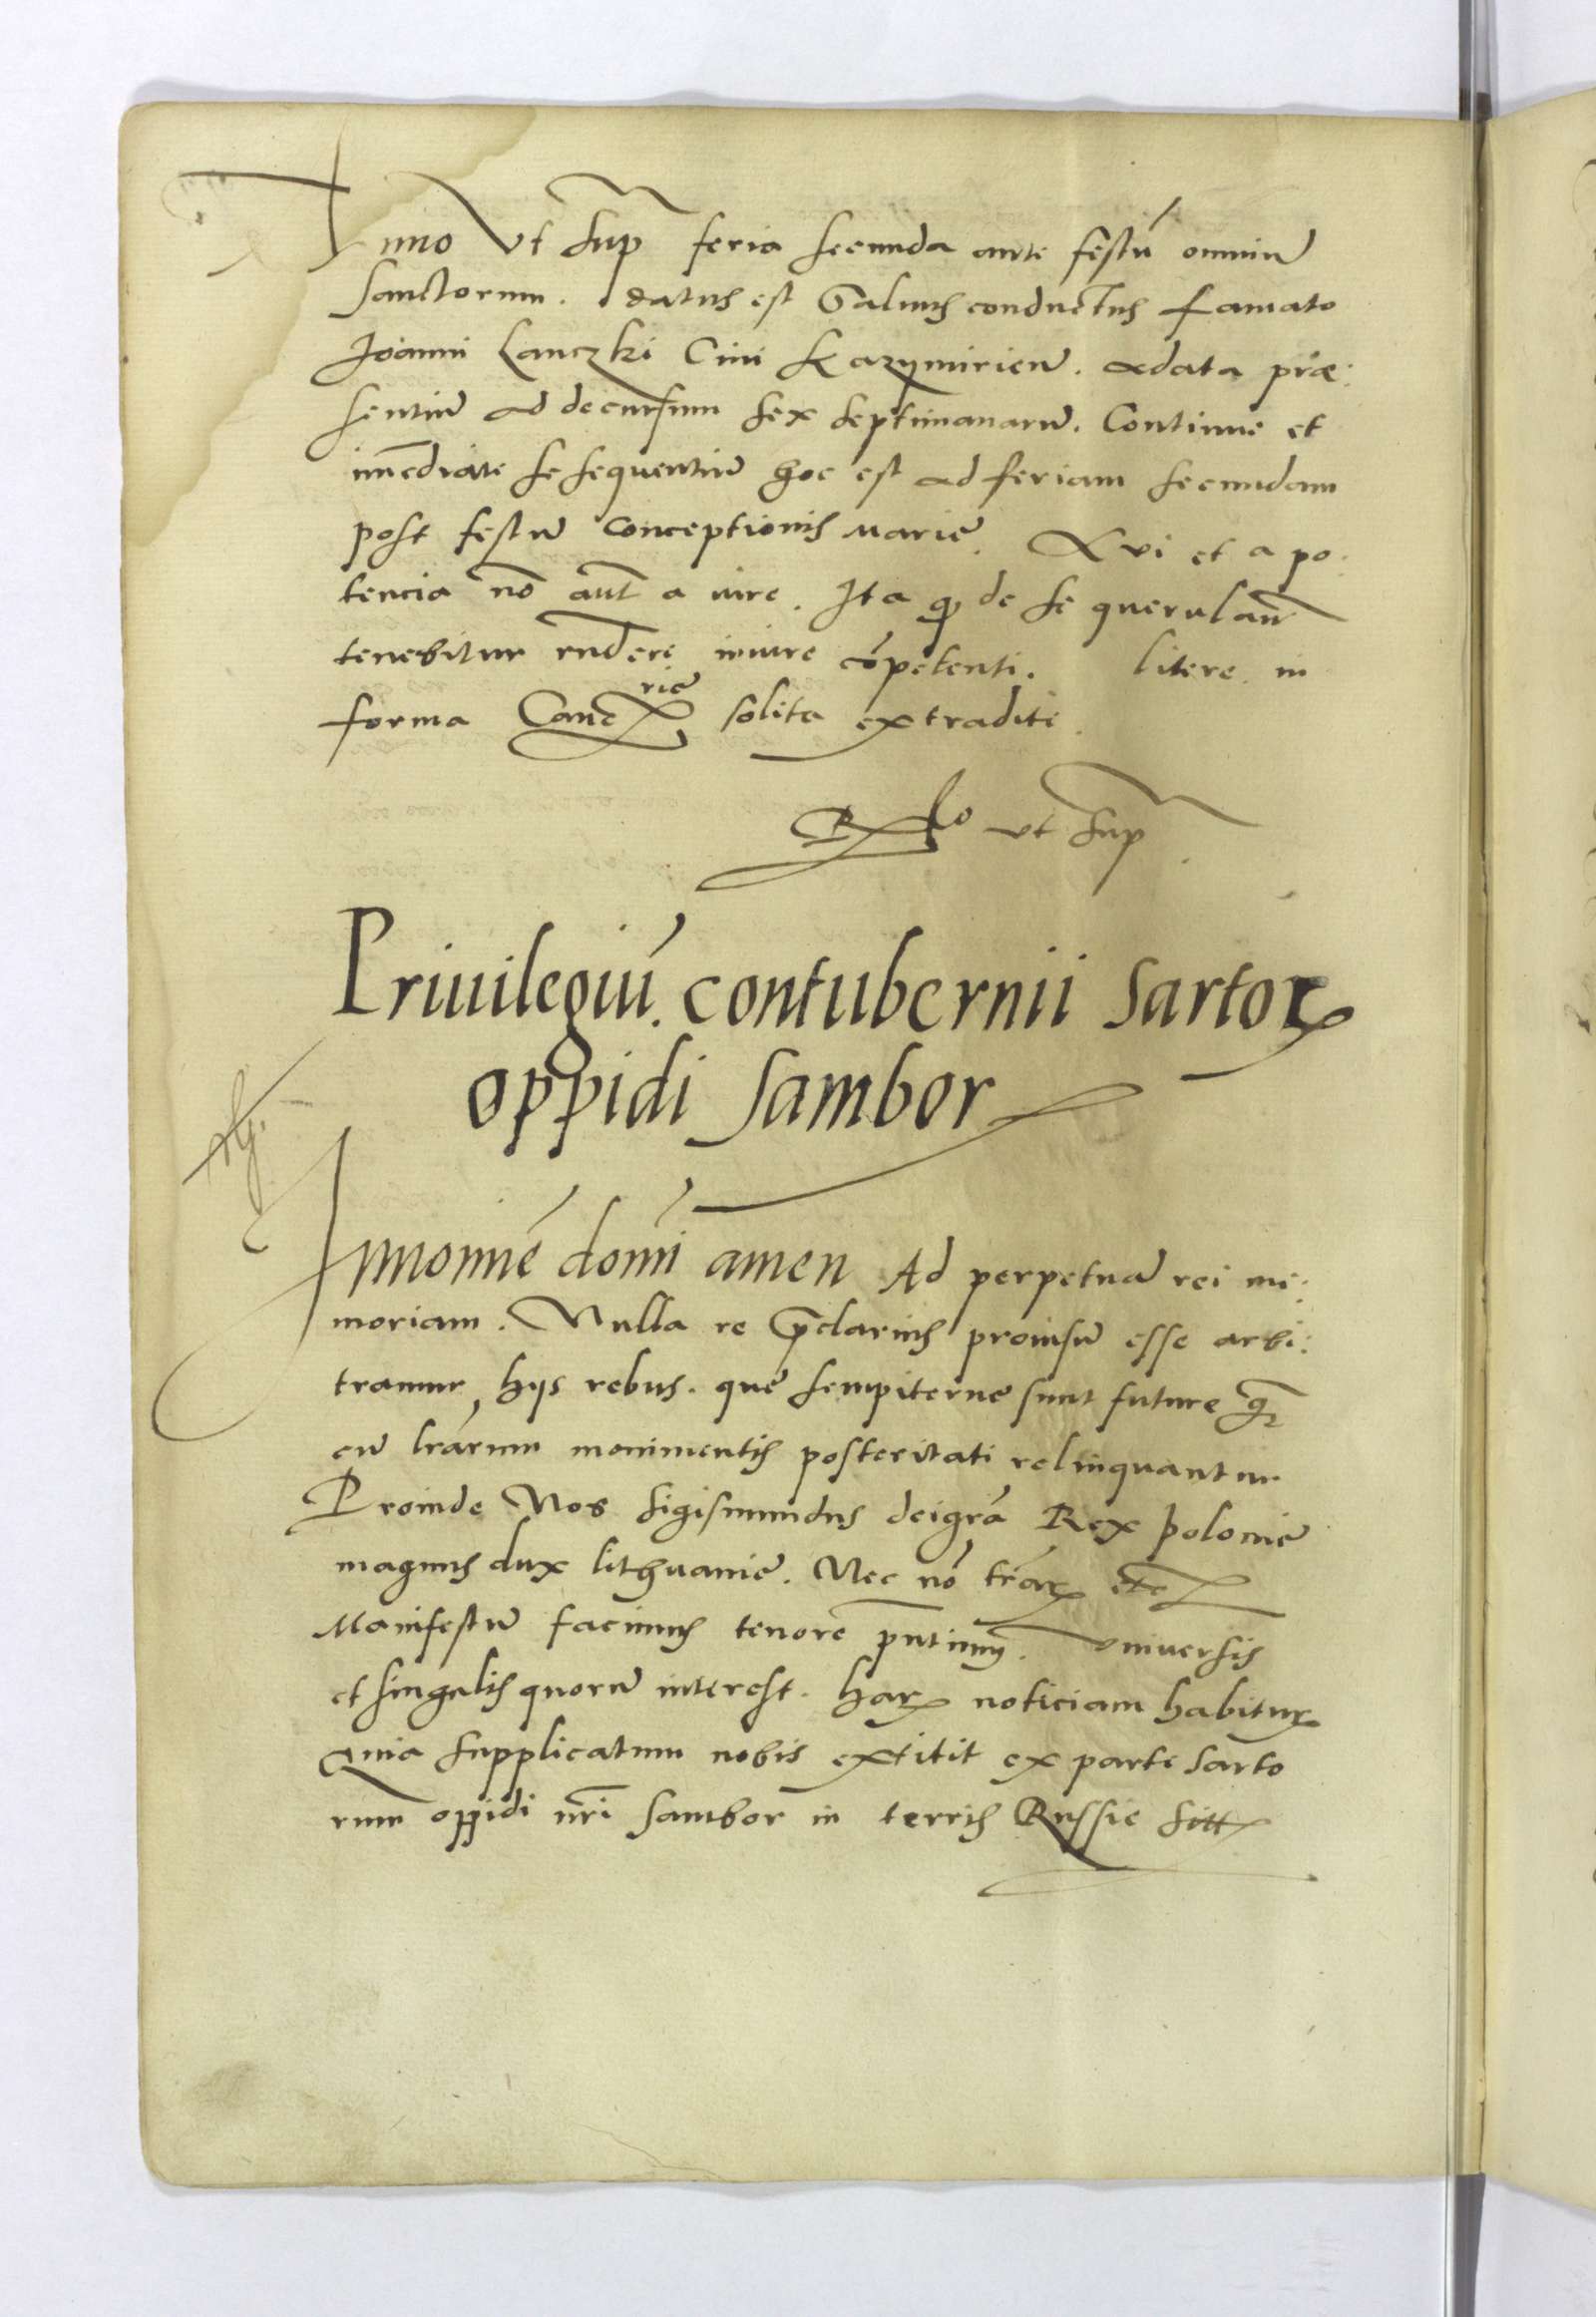 Anno Vt sup feria secunda ante festũ omniũ
sanctorum. datus est Saluus conductus famato
Joanni Lanczki Ciui Kazÿmirień. adata præ:
sentiũ ad decursum sex septimanarũ. Continue et
im̃ediate se sequentiũ hoc est ad feriam secundam
post festũ conceptionis Marie. A vi et a po:
tencia nõ aut̃ a iure. Ita ꝙ de se querulañ
tenebitur rñdere iniure cõpetenti. litere in
forma Cancrie solita extradite.
Rlo vt sup.
Priuilegiũ contubernii Sartoꝝ
oppidi Sambor
Innomiñe domĩ amen Ad perpetuã rei me:
moriam. Nulla re p̃clarius prouisũ esse arbi:
tramur hijs rebus. que sempiterne sunt future q̃
cũ lrãrum monimentis posteritati relinquantur
Proinde Nos Sigismundus deigrã Rex polonie
magnus dux lithuanie. Nec nõ trãꝝ etc
Manifestũ facimus tenore pñtium. Vniuersis
et singulis quorũ interest. haꝝ noticiam habituꝝ
Quia supplicatum nobis extitit ex parte sarto
rum oppidi nrĩ Sambor in terris Russie sitt